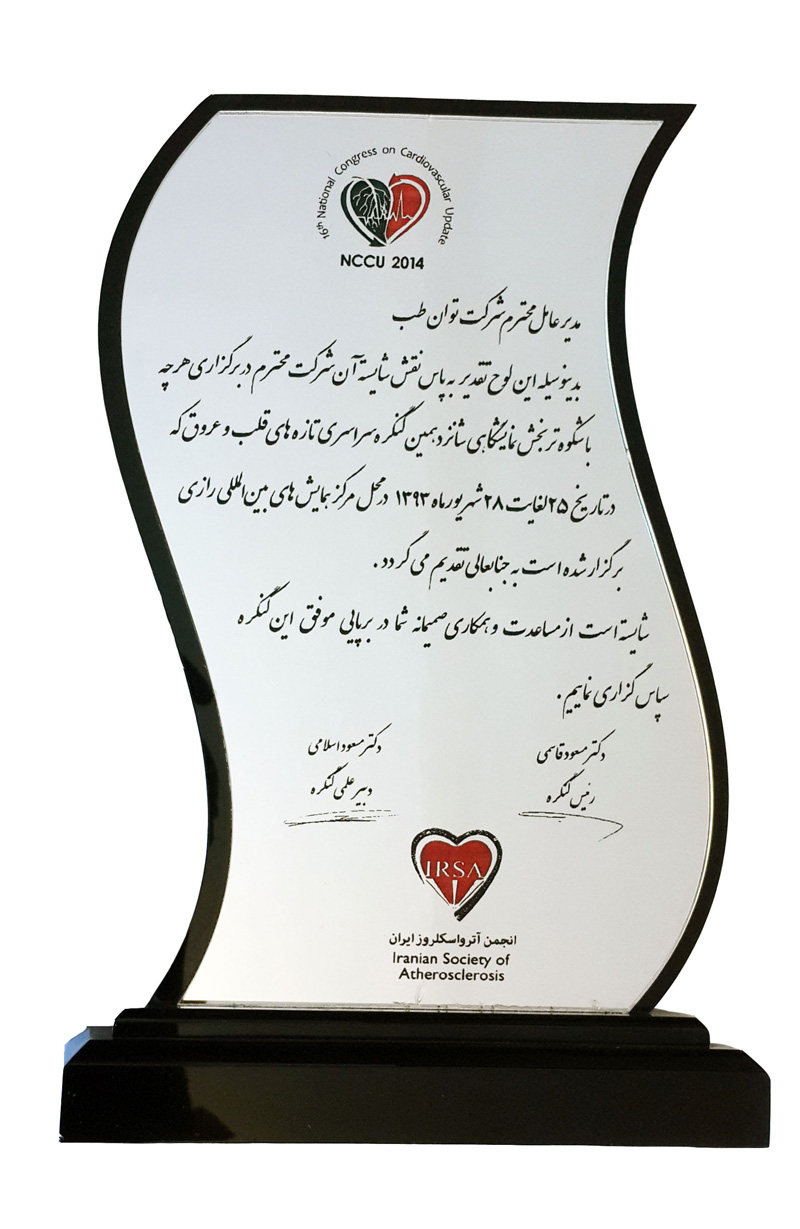 16th National Congress on Cardiovascular Update
NCCU 2014
مدیر عامل محترم شرکت توان طب
بدینوسیله این لوح تقدیر به پاس نقش شایسته آن شرکت محترم در برگزاری هرچه
باشکوه تر بخش نمایشگاهی شانزدهمین کنگره سراسری تازه های قلب و عروق که
در تاریخ ۲۵ لغایت ۲۸ شهریور ماه ۱۳۹۳ در محل مرکز همایش های بین المللی رازی
برگزار شده است به جنابعالی تقدیم می گردد .
شایسته است از مساعدت و همکاری صمیمانه شما در برپایی موفق این کنگره
سپاس گزاری نماییم .
دکتر مسعود قاسمی دکتر مسعود اسلامی
رئیس کنگره دبیر علمی کنگره
IRSA
انجمن آترواسکلروز ایران
Iranian Society of
Atherosclerosis